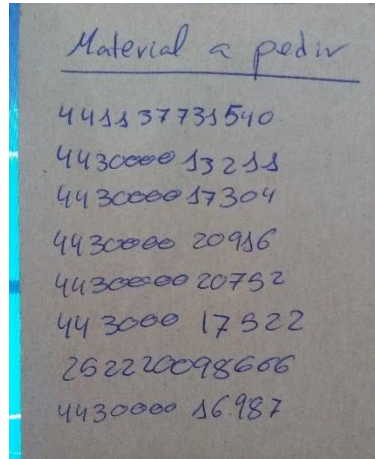 Material a pedir
441137731540
4430000 13211
4430000 17304
4430000 20916
4430000 20752
443000 17522
252220098666
4430000 16.987